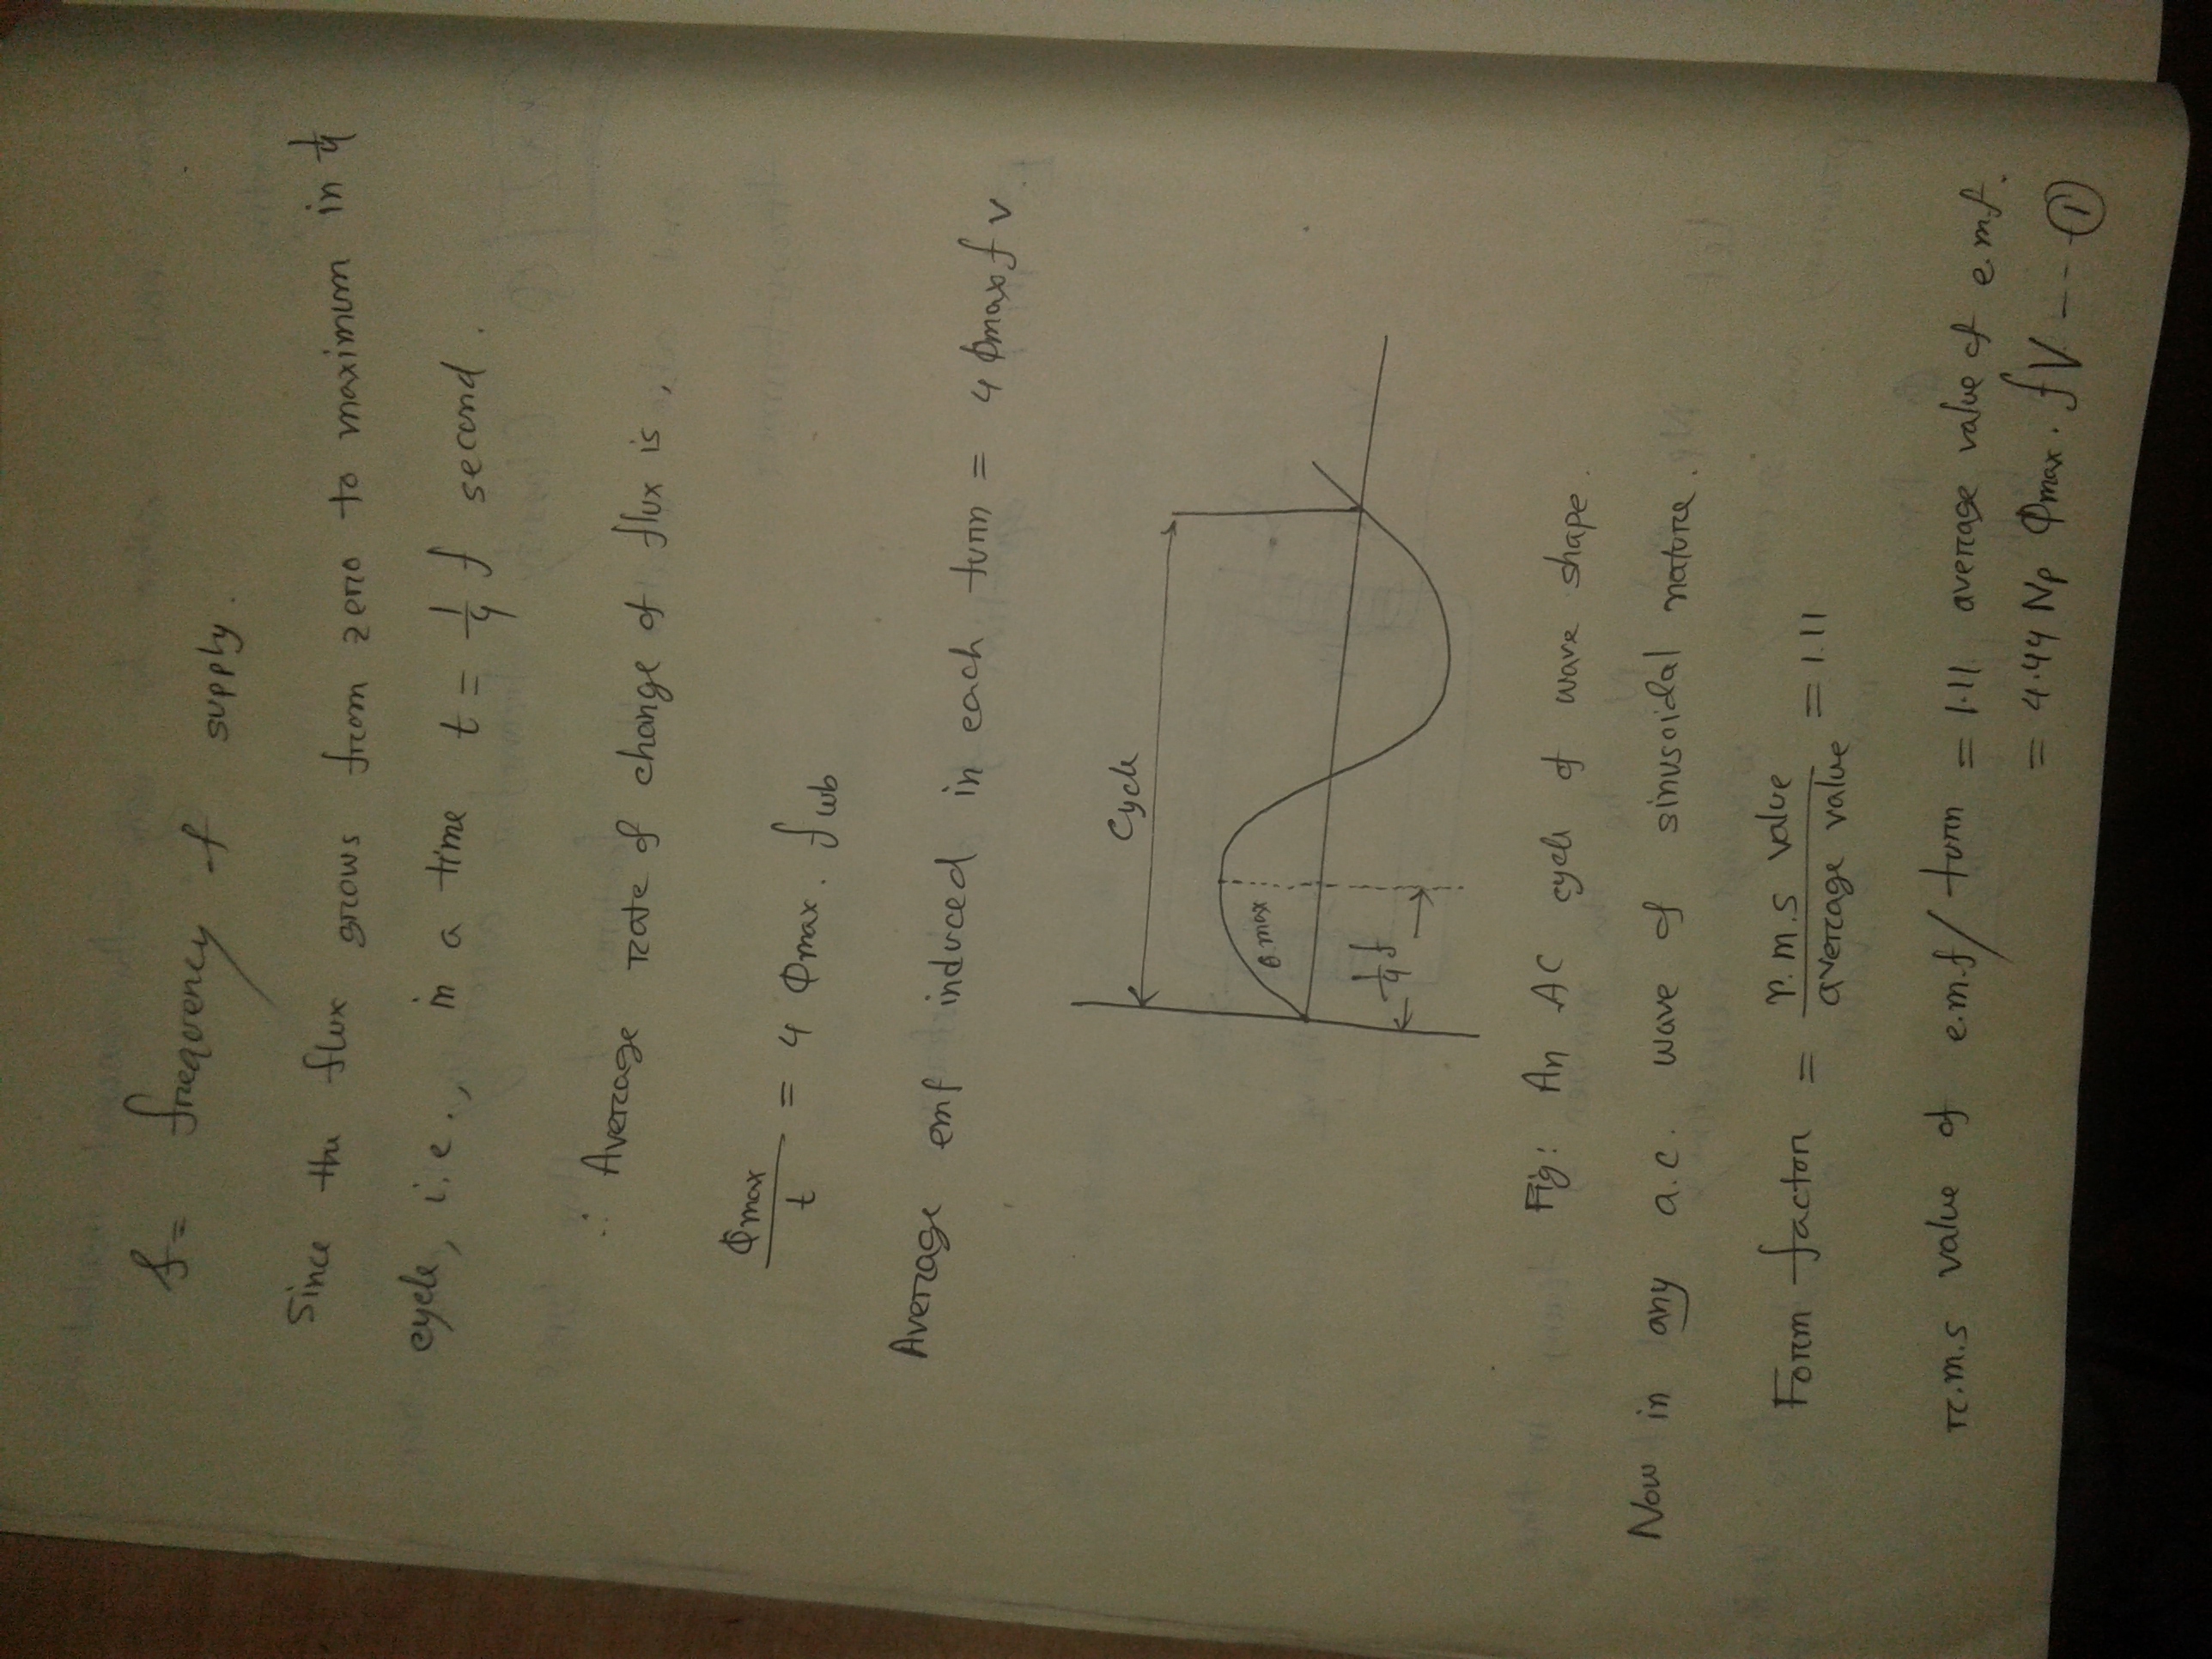 f = frequency of supply.
Since the flux grows from zero to maximum in 1/4
cycle, i.e., in a time t = 1/4 f second.
∴ Average rate of change of flux is,
Φmax / t = 4 Φmax. f wb
Average emf induced in each turn = 4 Φmax f v
Cycle
θ max
1/4 f
Fig: An AC cycle of wave shape.
Now in any a.c. wave of sinusoidal nature.
Form factor = r.m.s value / average value = 1.11
r.m.s value of e.m.f/ turn = 1.11 average value of e.m.f.
= 4.44 Np Φmax. f V --- ①